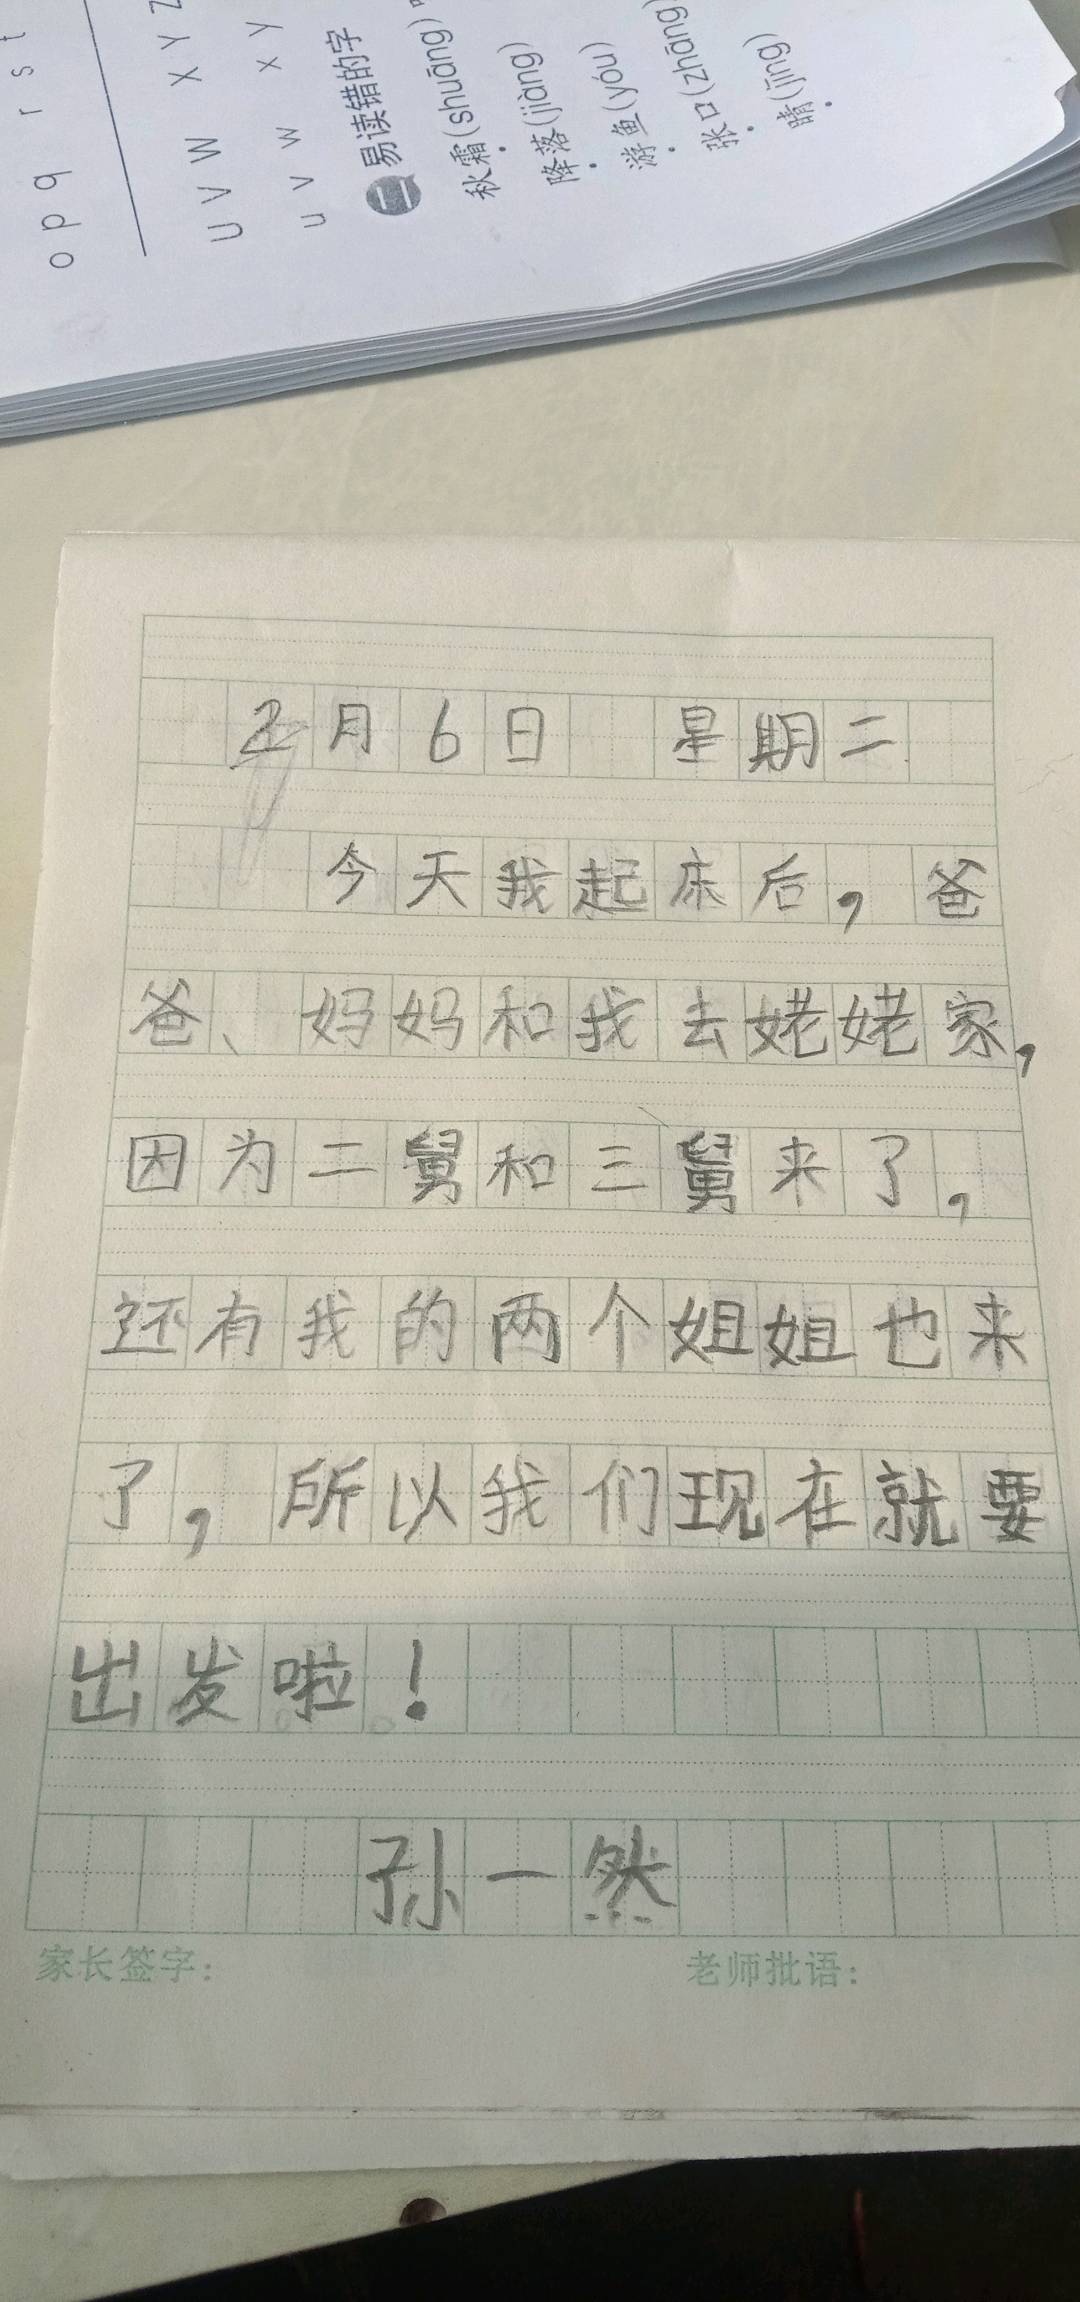 o p q r s t
U V W X Y Z
u v w x y
二 易读错的字
秋霜(shuāng)
降落(jiàng)
游鱼(yóu)
张口(zhāng)
睛(jīng)
2月6日 星期二
今天我起床后，爸
爸、妈妈和我去姥姥家，
因为二舅和三舅来了，
还有我的两个姐姐也来
了，所以我们现在就要
出发啦！
孙一然
家长签字： 老师批语：